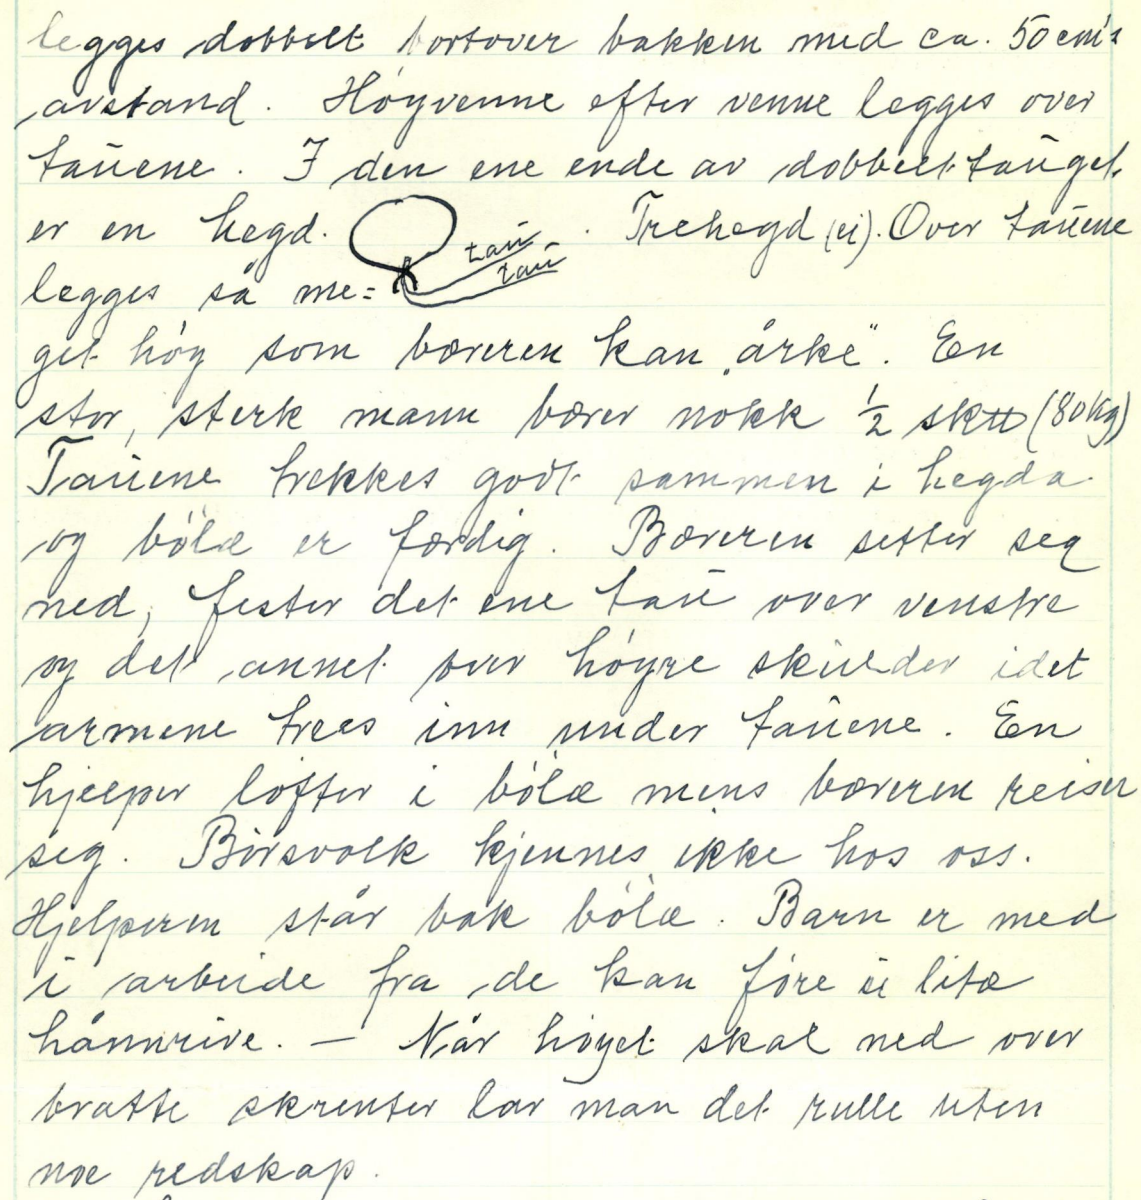 legges dobbelt bortover bakken med ca. 50 cm's
avstand. Høyvenne efter venne legges over
tauene. I den ene ende av dobbelt-tauget
er en hegd. Trehegd (ei). Over tauene
tau
tau
legges så me=
get høy som bæreren kan „årke". En
stor, sterk mann bærer nokk ½ sk℔ (80 kg)
Tauene trekkes godt sammen i hegda
og bølæ er færdig. Bæreren setter seg
ned, fester det ene tau over venstre
og det annet over høyre skulder idet
armene trees inn under tauene. En
hjelper løfter i bølæ mens bæreren reiser
seg. Børsvolk kjennes ikke hos oss.
Hjelperen står bak bølæ. Barn er med
i arbeide fra de kan føre ei litæ
hånnrive. — Når høyet skal ned over
bratte skrenter lar man det rulle uten
noe redskap.